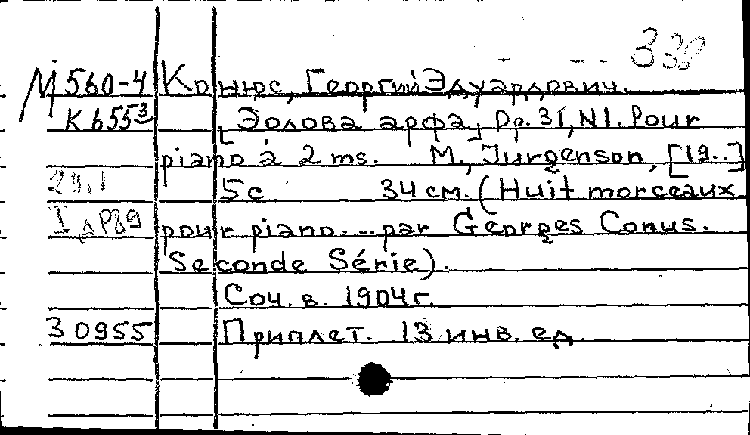 330
М 560-4 Конюс, Георгий Эдуардович.
К 655³ [Эолова арфа] Op. 31, N1. Pour
piano à 2 ms. M., Jurgenson, [19..]
5с 34 см. (Huit morceaux
pour piano... par Georges Conus.
Seconde Série).
Соч. в. 1904 г.
30955 Приплет. 13 инв. ед.